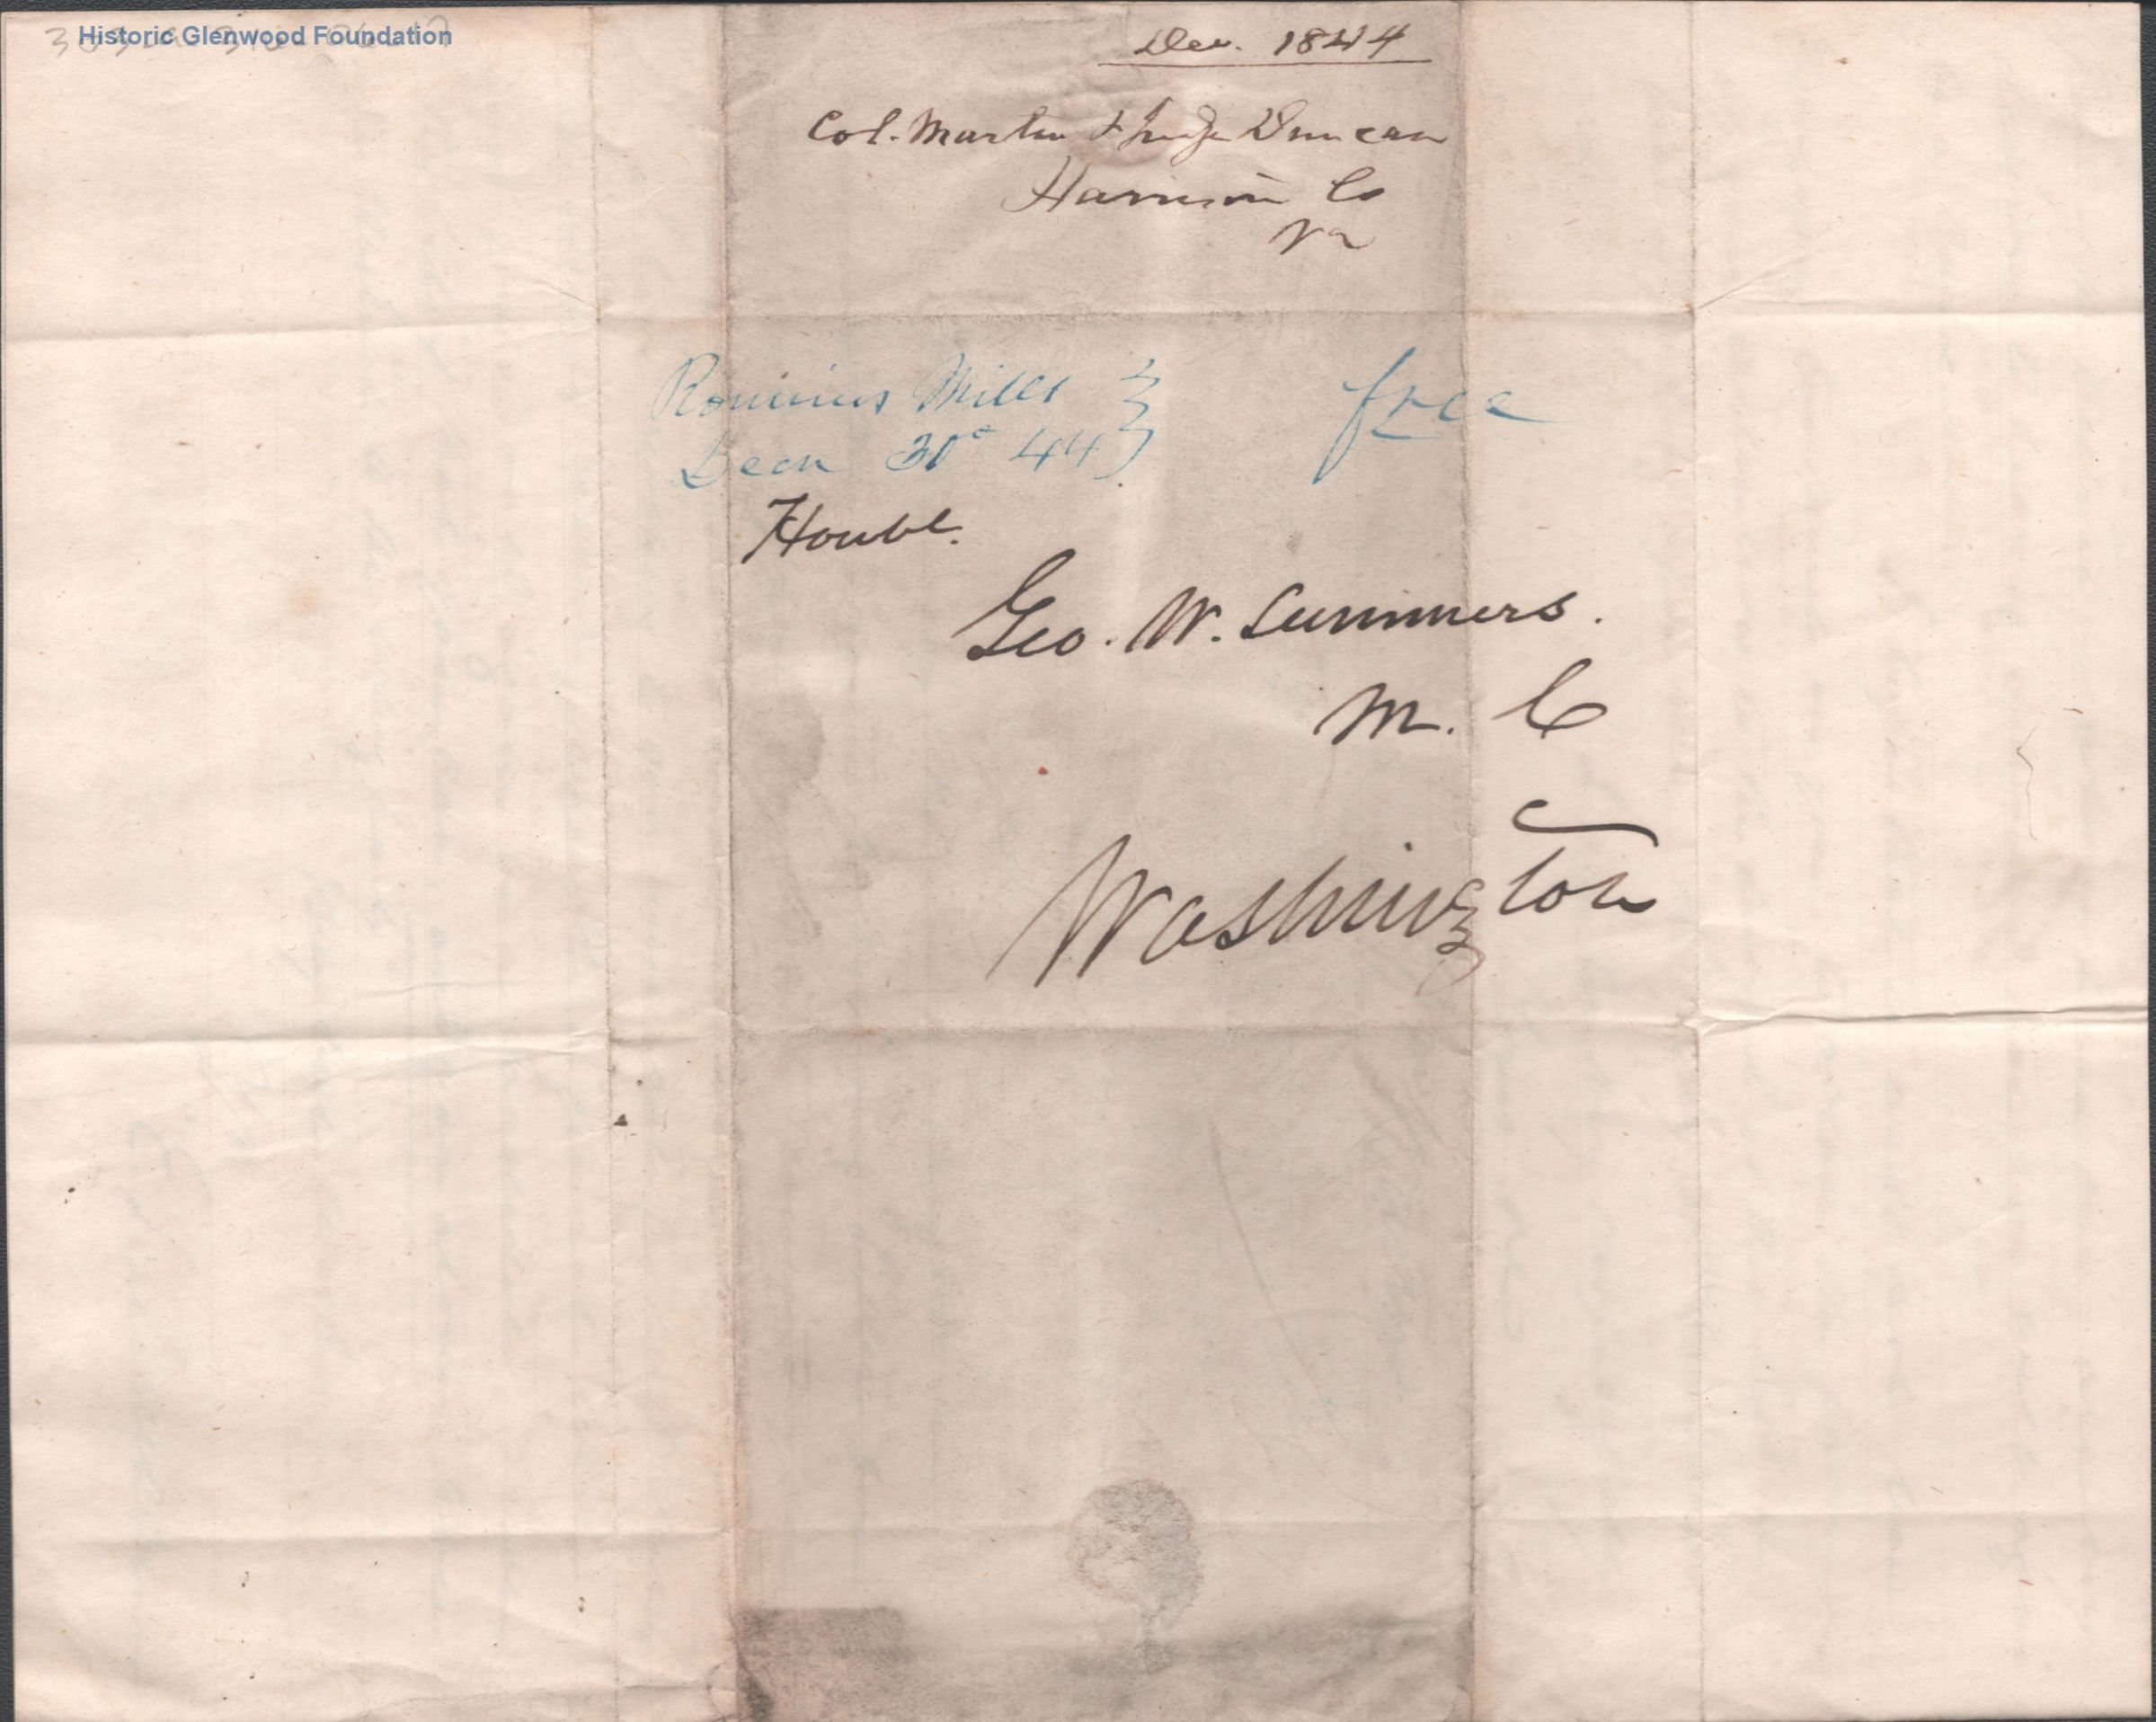 Historic Glenwood Foundation
Dec. 1844
Col. Martin & Judge Duncan
Harrison Co
Va
Romines Mills
Decr 30th 44
free
Honbl.
Geo. W. Summers.
M. C
Washington